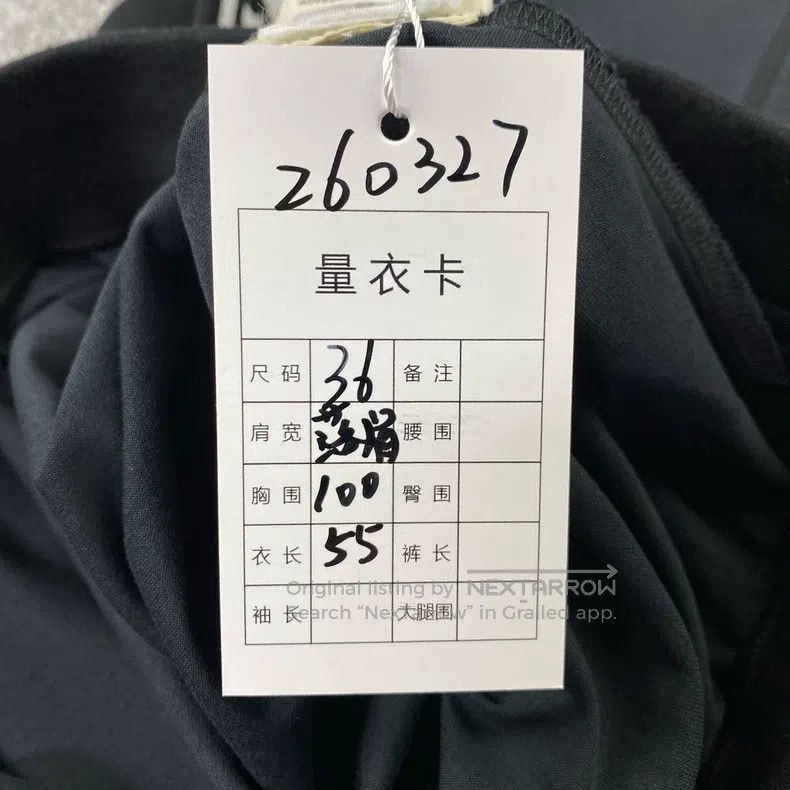 260327
量衣卡
尺码 36 备注
肩宽 落肩 腰围
胸围 100 臀围
衣长 55 裤长
袖长 大腿围
Original listing by NEXTARROW
Search “Nextarrow” in Grailed app.